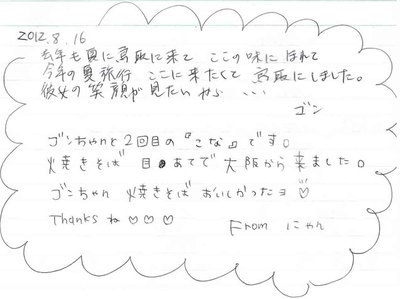 2012.8.16
去年も夏に鳥取に来て ここの味にほれて
今年の夏旅行 ここに来たくて 鳥取にしました。
彼女の笑顔が見たいから ・・・
ゴン
ゴンちゃんと2回目の『こな』です。
焼きそば 目あてで 大阪から来ました。
ゴンちゃん 焼きそば おいしかったヨ♡
Thanks ね♡♡♡
From にゃん